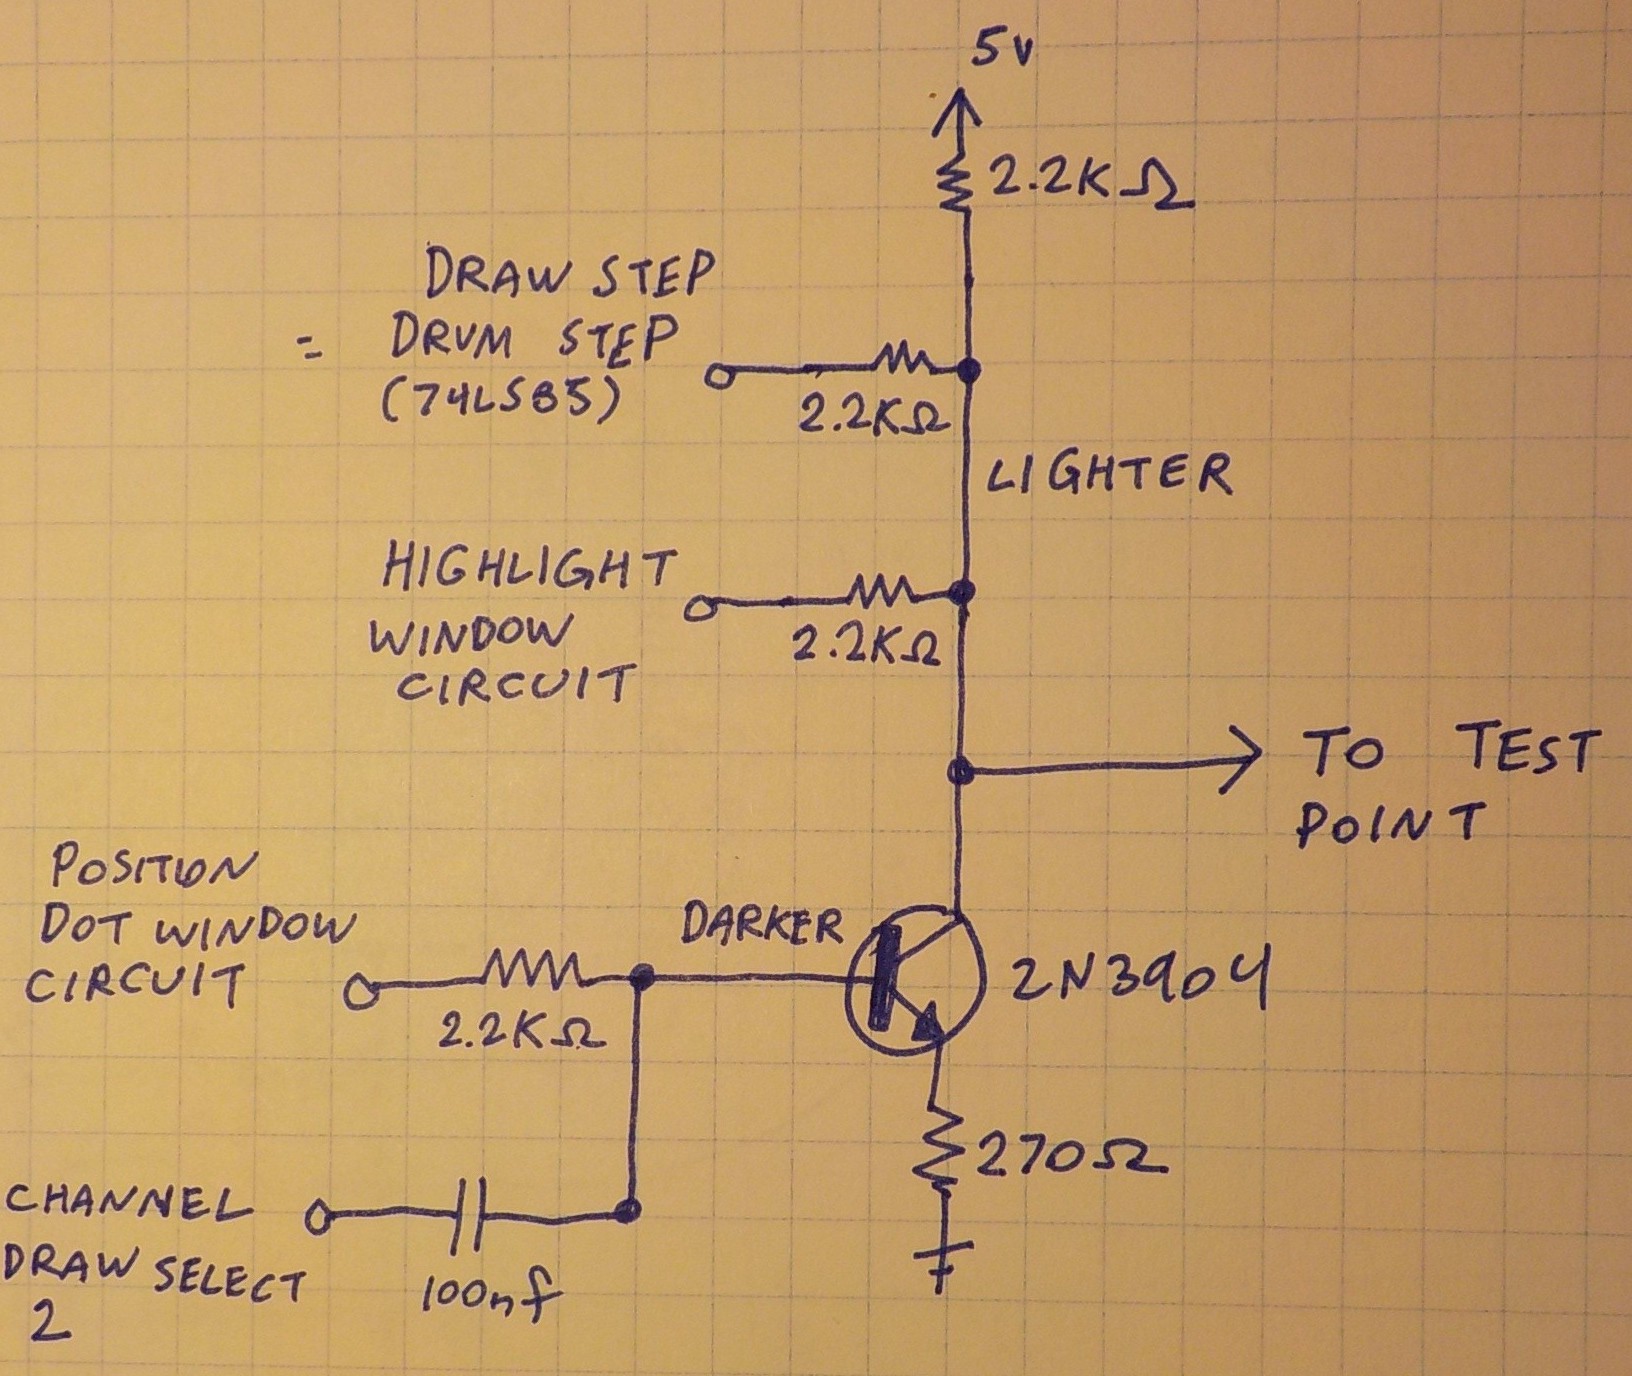 5v
2.2KΩ
DRAW STEP
= DRUM STEP
(74LS85)
2.2KΩ
LIGHTER
HIGHLIGHT
WINDOW
CIRCUIT
2.2KΩ
TO TEST
POINT
POSITION
DOT WINDOW
CIRCUIT
2.2KΩ
DARKER
2N3904
270Ω
CHANNEL
DRAW SELECT
2
100nf